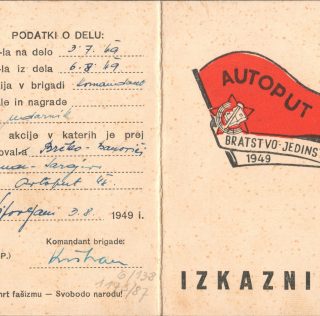 PODATKI O DELU:
-la na delo 3. 7. 49
-la iz dela 6. 8. 49
ija v brigadi komandant
le in nagrade
udarnik
akcije v katerih je prej
oval-a Brčko-Banovići
Sarajevo
Avtoput
3. 8. 1949 i.
Komandant brigade:
P.)
6/938
1193/87
rt fašizmu — Svobodo narodu!
AUTOPUT
BRATSTVO-JEDINS
1949
IZKAZNI